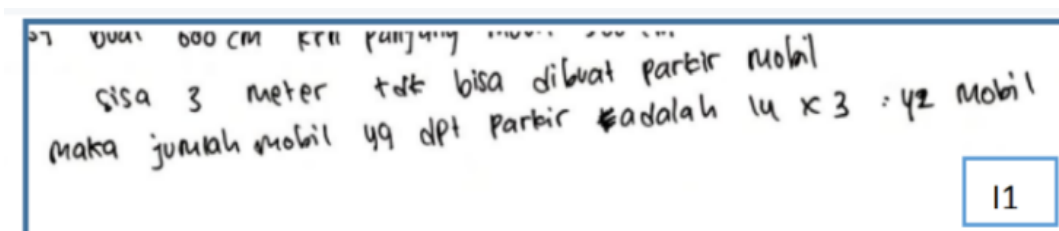 600 cm krn panjung
sisa 3 meter tdk bisa dibuat parkir mobil
maka jumlah mobil yg dpt parkir adalah 14 x 3 : 42 Mobil
I1